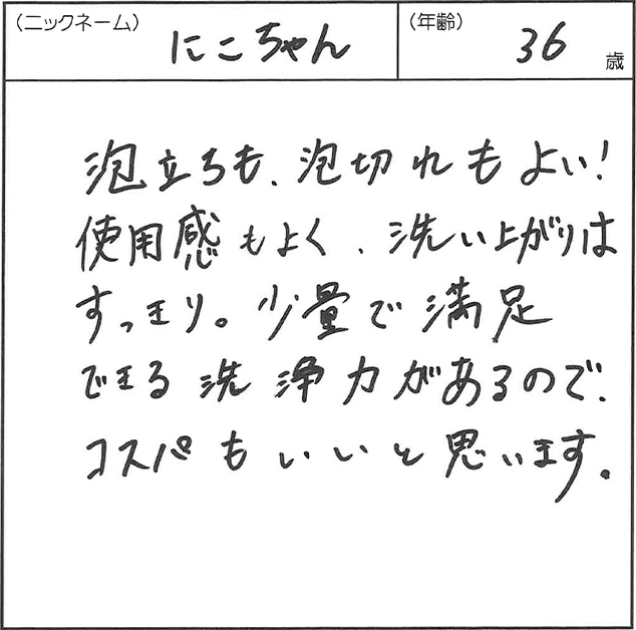 (ニックネーム) にこちゃん (年齢) 36 歳
泡立ちも、泡切れもよい!
使用感もよく、洗い上がりは
すっきり。少量で満足
できる洗浄力があるので、
コスパもいいと思います。